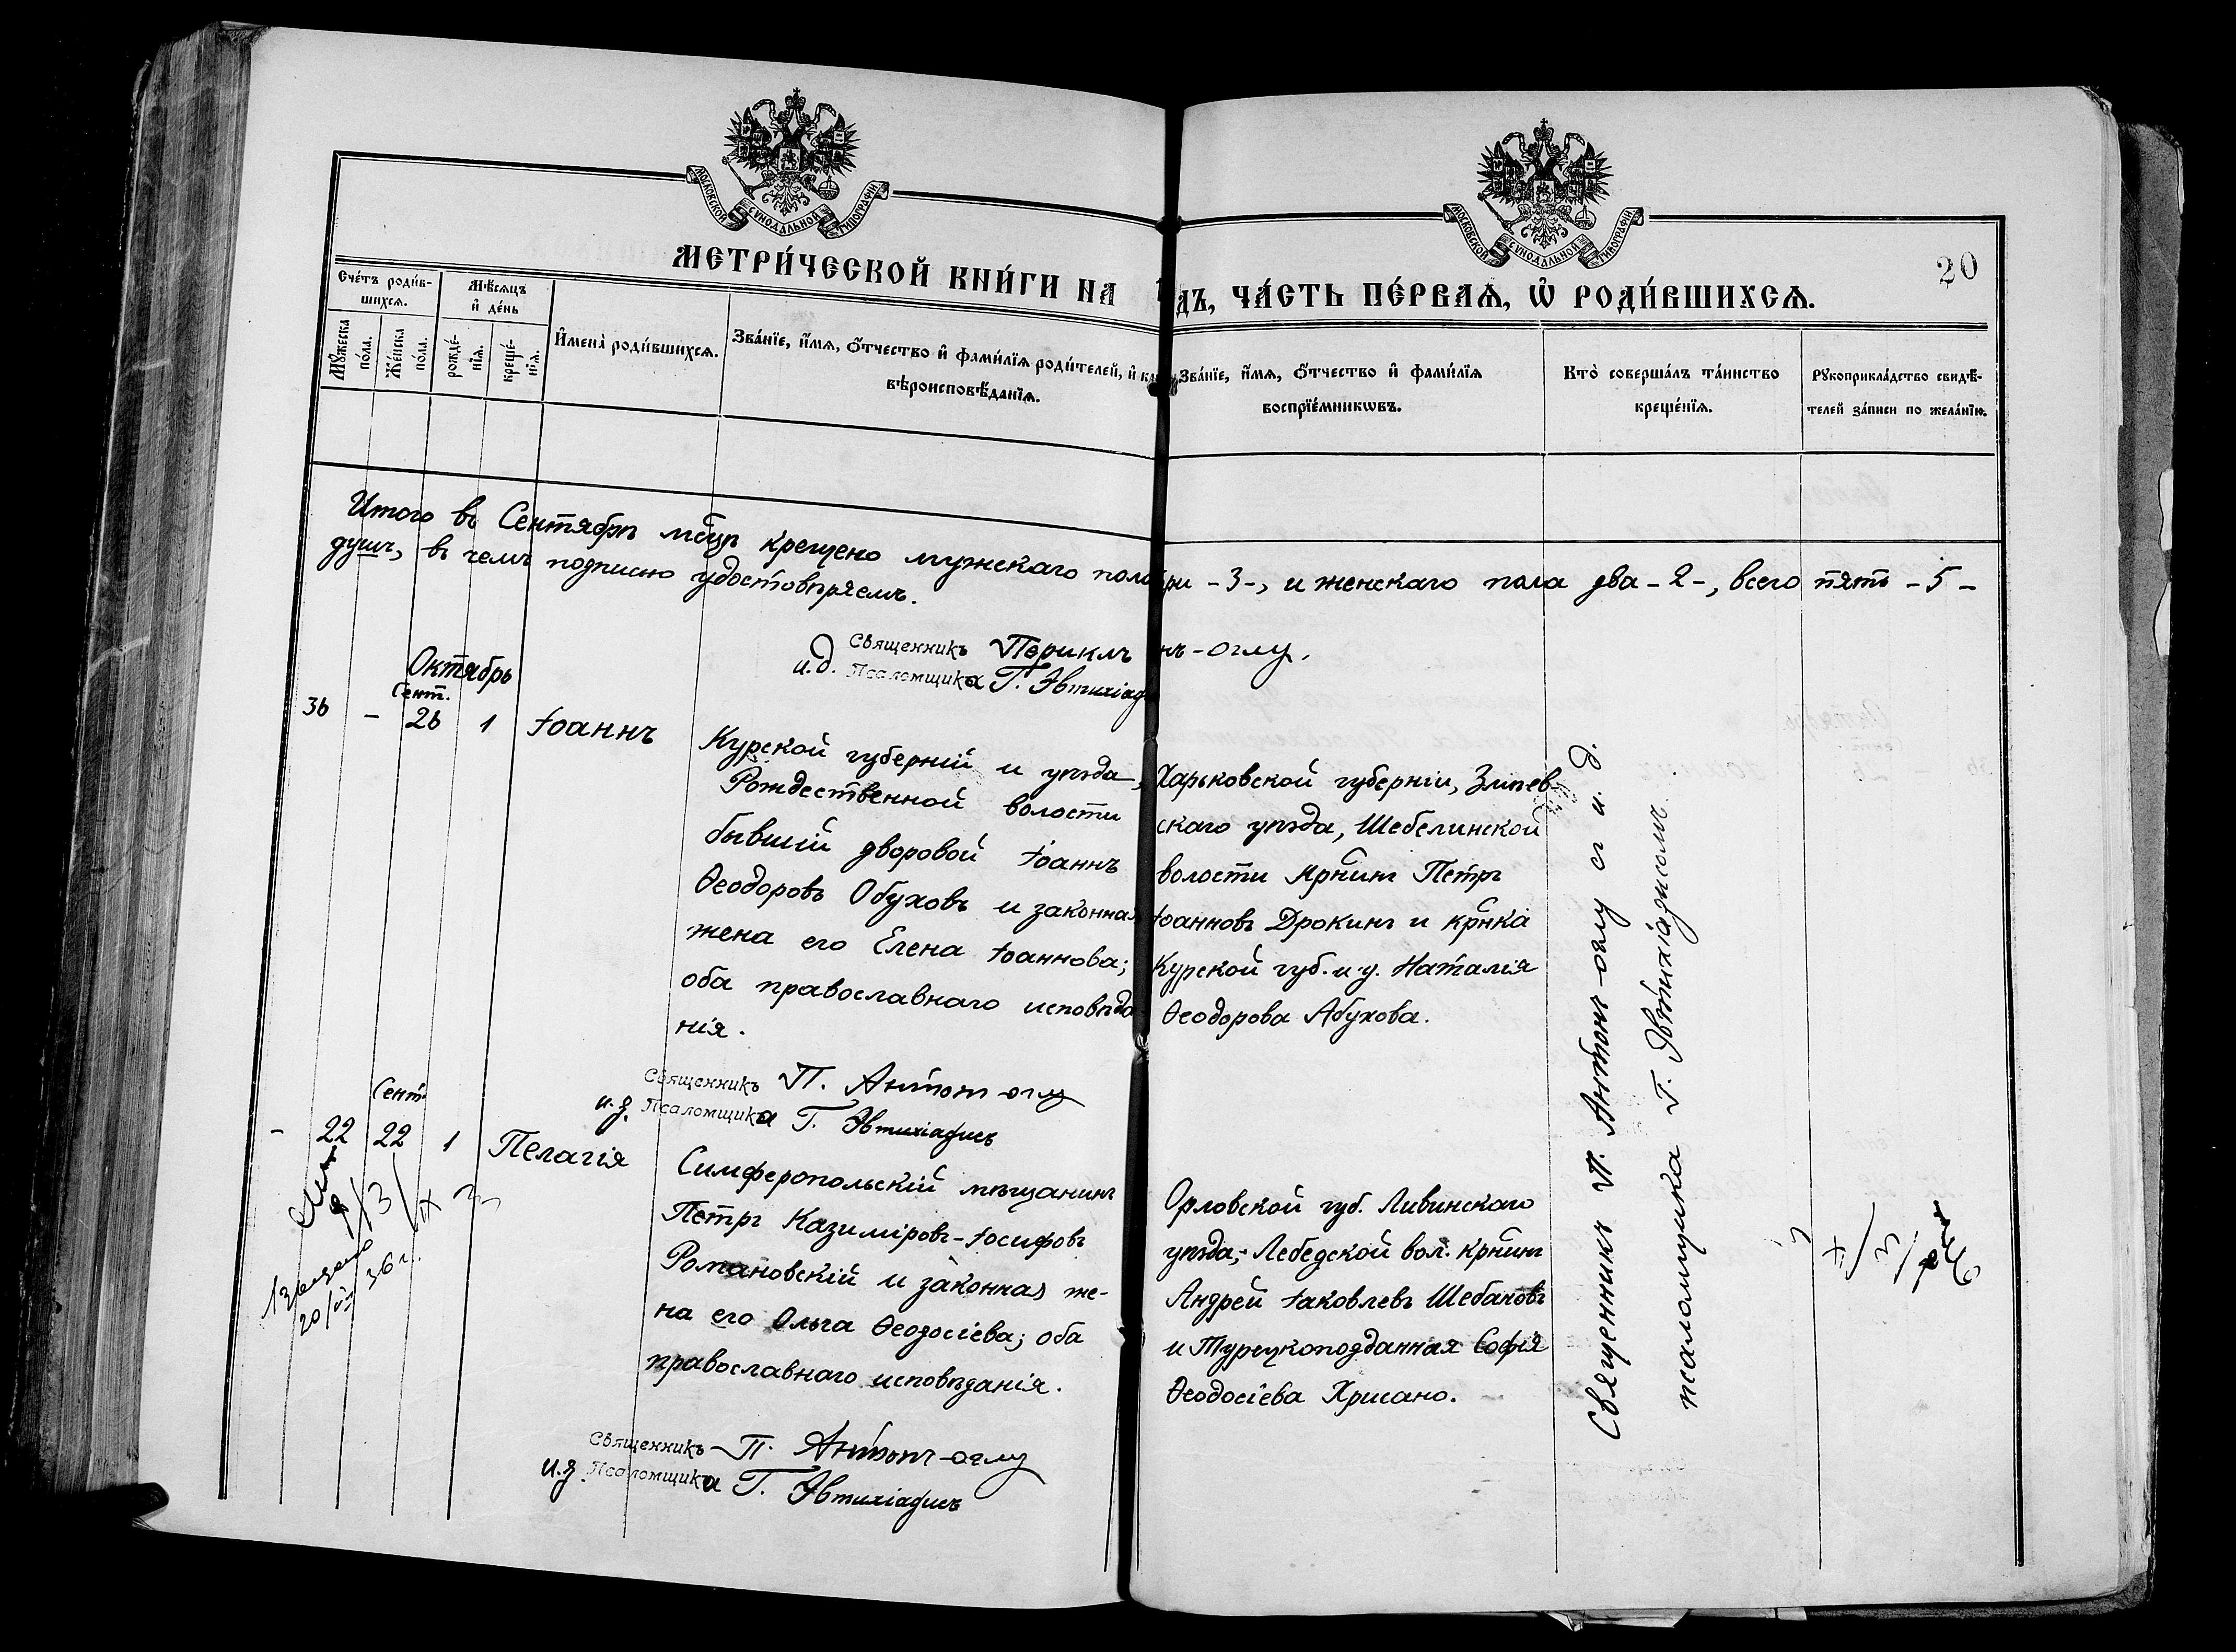 МОСКОВСКОЙ СѴНОДАЛЬНОЙ ТИПОГРАФІИ
МОСКОВСКОЙ СѴНОДАЛЬНОЙ ТИПОГРАФІИ
20
МЕТРИ́ЧЕСКОЙ КНИ́ГИ НА
дъ, ЧА́СТЬ ПЕ́РВАѦ, Ѡ҆ РОДИ́ВШИХСѦ.
Сче́тъ роди́в-
шихсѧ.
Мꙋ́жеска по́ла.
Же́нска по́ла.
Мѣ́сѧцъ
и҆ де́нь
рожде́-
нїѧ.
креще́-
нїѧ.
И҆мена̀ роди́вшихсѧ.
Зва́нїе, и҆́мѧ, ѻ҆́тчество и҆ фами́лїѧ роди́телей, и҆
вѣроисповѣ́данїѧ.
Зва́нїе, и҆́мѧ, ѻ҆́тчество и҆ фами́лїѧ
воспрїе́мникѡвъ.
Кто̀ соверша́лъ та́инство
креще́нїѧ.
Рꙋкоприкла́дство свидѣ́-
телей за́писи по жела́нїю.
Итого въ Сентябрѣ мсцѣ крещено мужскаго пола три -3-, и женскаго пола два -2-, всего пять -5-
душъ, въ чемъ подписью удостовѣряемъ.
Священникъ Периклъ нъ-оглу.
и.д. Псаломщика Г. Эвтихіад
Октябрь
Сент.
36 - 26 1 Іоаннъ
Курской губерніи и уѣзда,
Рождественной волости
бывшій дворовой Іоаннъ
Ѳеодоровъ Обуховъ и законная
жена его Елена Іоаннова;
оба православнаго исповѣда
нія.
Харьковской губерніи, Зміев-
скаго уѣзда, Шебелинской
волости крнинъ Петръ
Іоанновъ Дрокинъ и крнка
Курской губ. и у. Наталія
Ѳеодорова Абухова.
Священникъ П. Антонъ-оглу
и.д. Псаломщика Г. Эвтихіадисъ
Сент.
- 22 22 1 Пелагія
Симферопольскій мѣщанинъ
Петръ Казиміровъ-Іосифовъ
Романовскій и законная же-
на его Ольга Ѳеодосіева; оба
православнаго исповѣданія.
Орловской губ. Ливинскаго
уѣзда, Лебедской вол. крнинъ
Андрей Іаковлевъ Шебановъ
и Турецкоподданная Софія
Ѳеодосіева Хрисано.
Священникъ П. Антонъ-оглу съ и. д.
псаломщика Г. Эвтихіадисомъ.
20/VI 36 г.
Священникъ П. Антонъ-оглу
и.д. Псаломщика Г. Эвтихіадисъ